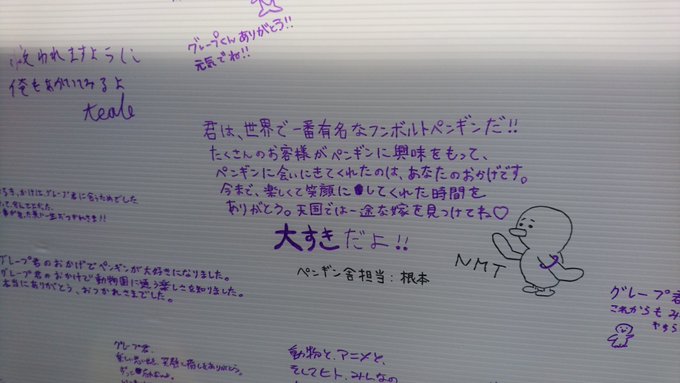 グレープくんありがとう!!
元気でね!!
われますように
俺もあがいてみるよ
teale
君は、世界で一番有名なフンボルトペンギンだ!!
たくさんのお客様がペンギンに興味をもって、
ペンギンに会いにきてくれたのは、あなたのおかげです。
今まで、楽しくて笑顔に●してくれた時間を
ありがとう。天国では一途な嫁を見つけてね♡
大すきだよ!!
ペンギン舎担当:根本
NMT
グレープ君に会うためでした
グレープ君のおかげでペンギンが大好きになりました。
グレープ君のおかげで動物園に通う楽しさを知りました。
本当にありがとう、おつかれさまでした。
グレープ君
これからもみ
グレープ君、
動物と、アニメと、
そしてヒト、みんなの